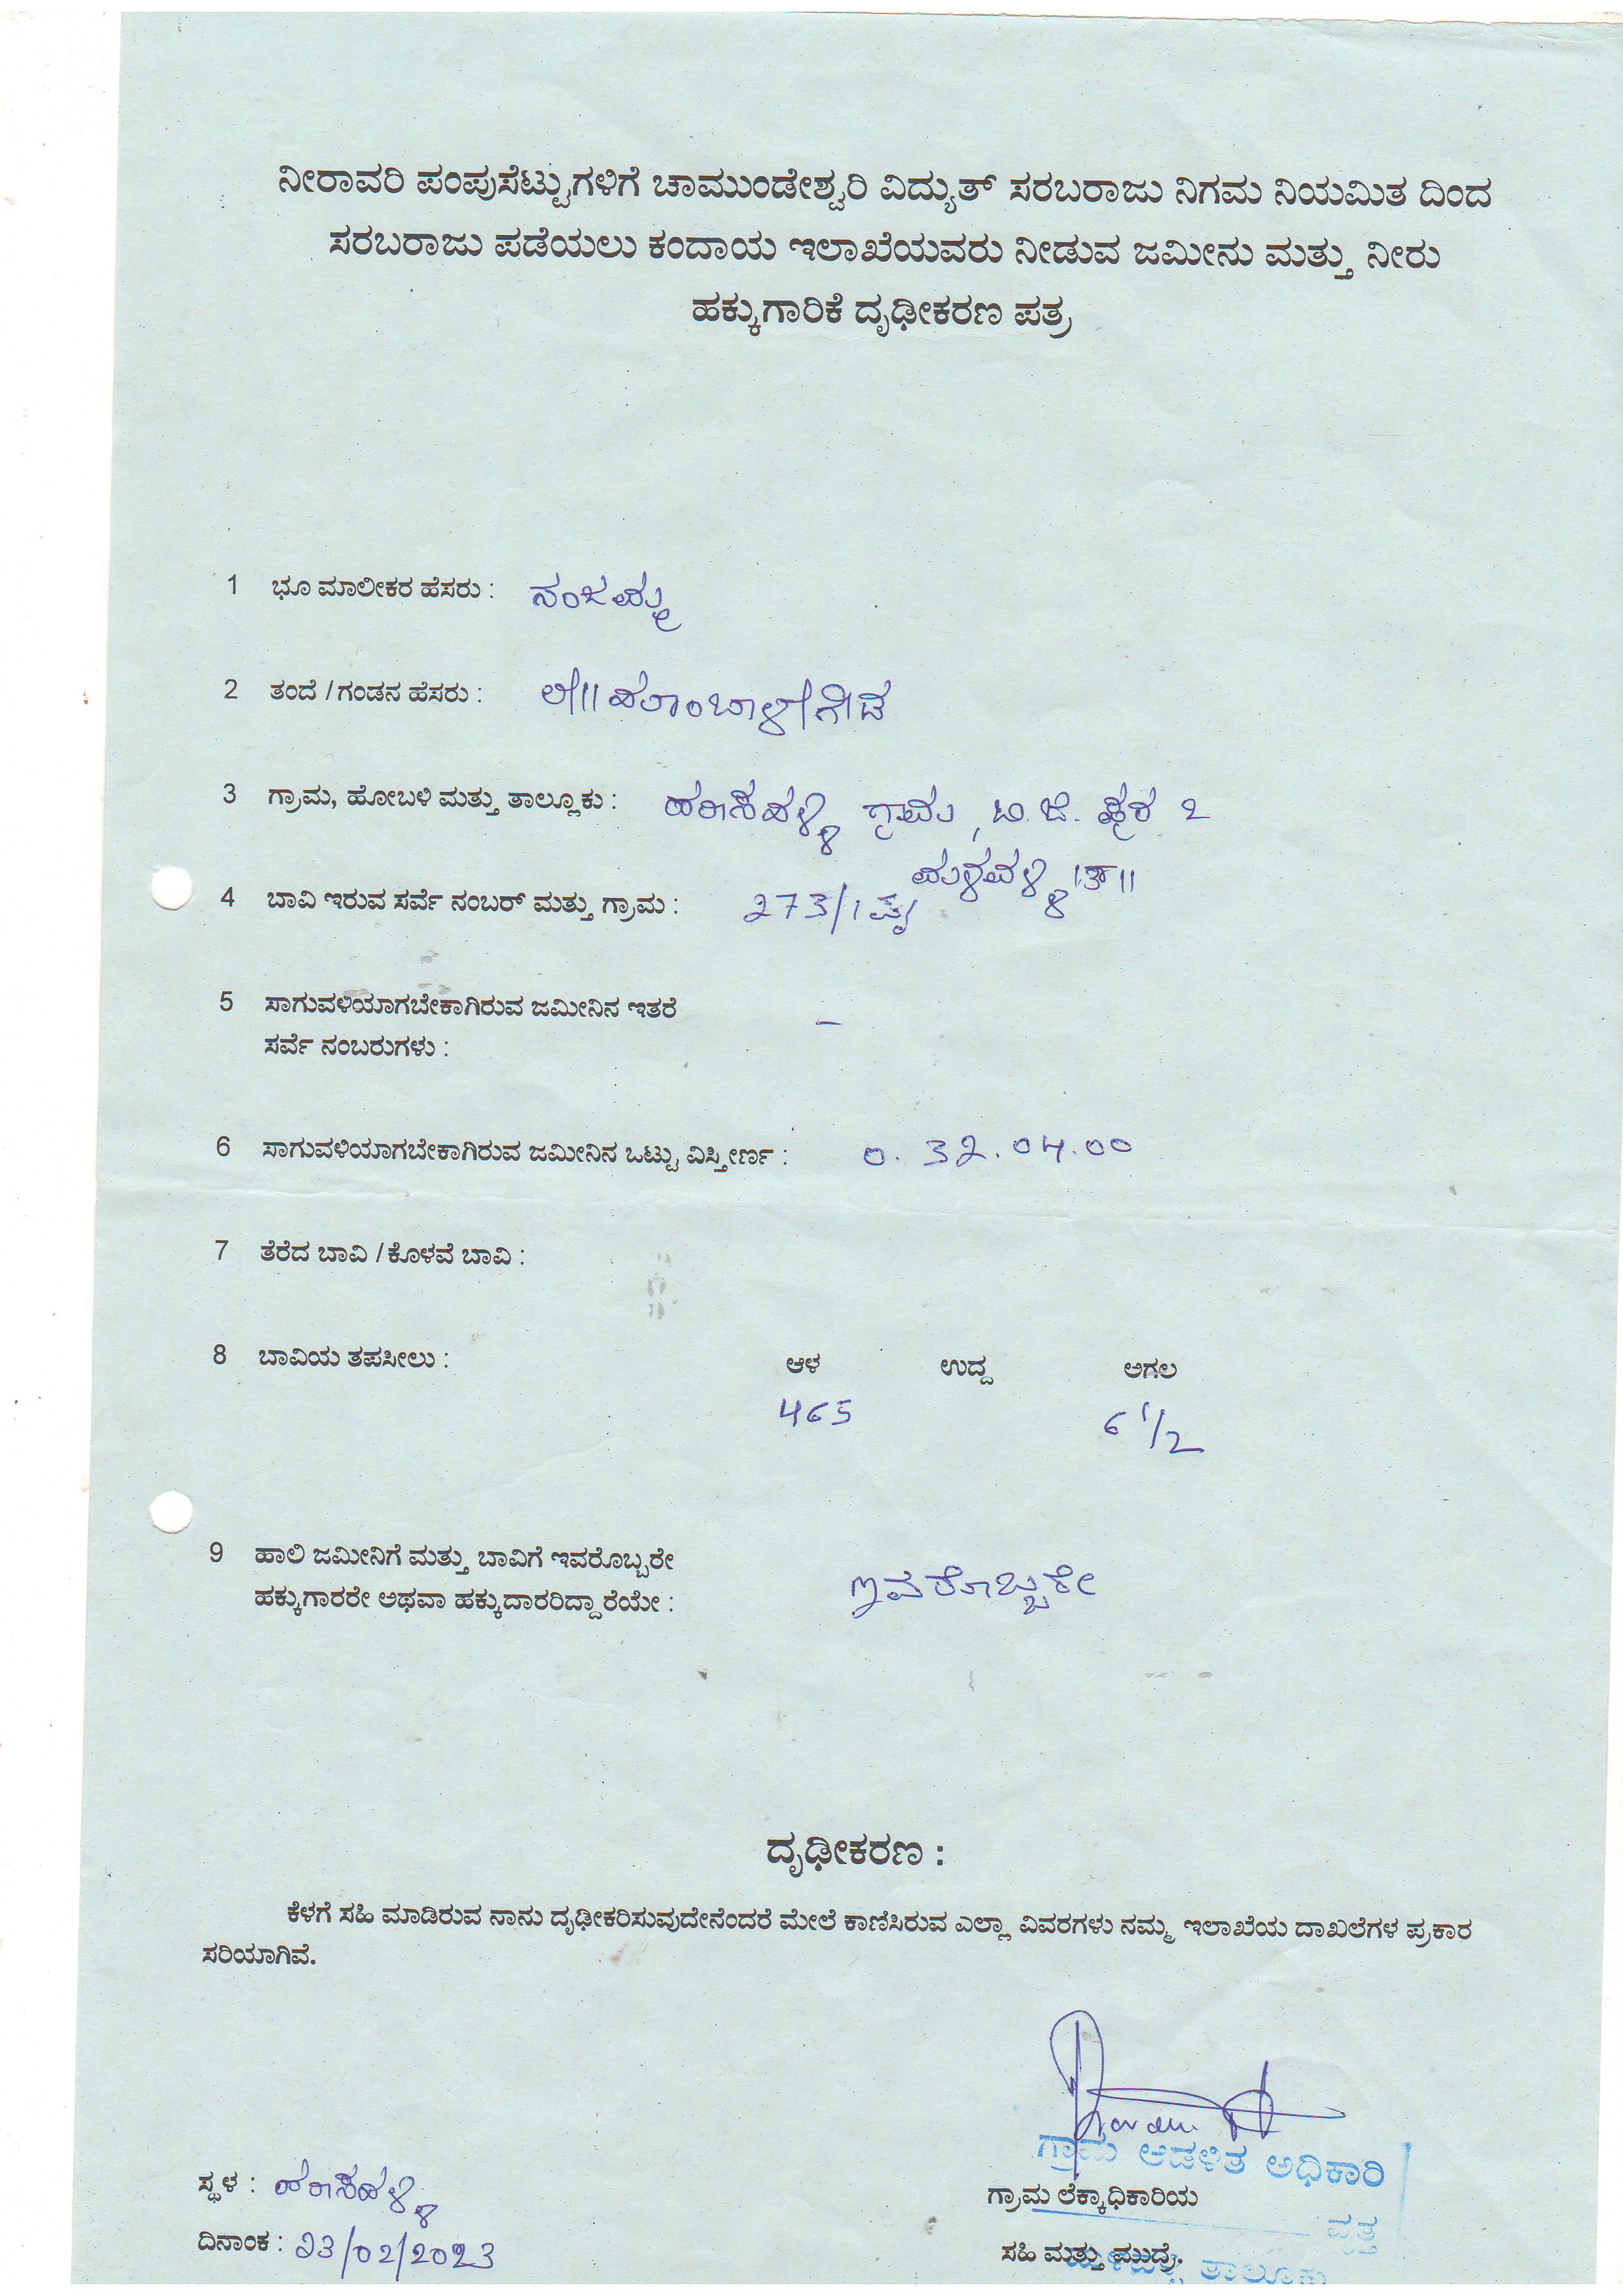 ನೀರಾವರಿ ಪಂಪುಸೆಟ್ಟುಗಳಿಗೆ ಚಾಮುಂಡೇಶ್ವರಿ ವಿದ್ಯುತ್ ಸರಬರಾಜು ನಿಗಮ ನಿಯಮಿತ ದಿಂದ
ಸರಬರಾಜು ಪಡೆಯಲು ಕಂದಾಯ ಇಲಾಖೆಯವರು ನೀಡುವ ಜಮೀನು ಮತ್ತು ನೀರು
ಹಕ್ಕುಗಾರಿಕೆ ದೃಢೀಕರಣ ಪತ್ರ
1 ಭೂ ಮಾಲೀಕರ ಹೆಸರು : ನಂಜಮ್ಮ
2 ತಂದೆ / ಗಂಡನ ಹೆಸರು :
3 ಗ್ರಾಮ, ಹೋಬಳಿ ಮತ್ತು ತಾಲ್ಲೂಕು : ಗ್ರಾಮ,
ಮಳವಳ್ಳಿ ತಾ||
4 ಬಾವಿ ಇರುವ ಸರ್ವೆ ನಂಬರ್ ಮತ್ತು ಗ್ರಾಮ : 273/1
5 ಸಾಗುವಳಿಯಾಗಬೇಕಾಗಿರುವ ಜಮೀನಿನ ಇತರೆ –
ಸರ್ವೆ ನಂಬರುಗಳು :
6 ಸಾಗುವಳಿಯಾಗಬೇಕಾಗಿರುವ ಜಮೀನಿನ ಒಟ್ಟು ವಿಸ್ತೀರ್ಣ : 0. 32. 04. 00
7 ತೆರೆದ ಬಾವಿ / ಕೊಳವೆ ಬಾವಿ :
8 ಬಾವಿಯ ತಪಸೀಲು : ಆಳ ಉದ್ದ ಅಗಲ
465 6 1/2
9 ಹಾಲಿ ಜಮೀನಿಗೆ ಮತ್ತು ಬಾವಿಗೆ ಇವರೊಬ್ಬರೇ ಇವರೊಬ್ಬರೇ
ಹಕ್ಕುಗಾರರೇ ಅಥವಾ ಹಕ್ಕುದಾರರಿದ್ದಾರೆಯೇ :
ದೃಢೀಕರಣ :
ಕೆಳಗೆ ಸಹಿ ಮಾಡಿರುವ ನಾನು ದೃಢೀಕರಿಸುವುದೇನೆಂದರೆ ಮೇಲೆ ಕಾಣಿಸಿರುವ ಎಲ್ಲಾ ವಿವರಗಳು ನಮ್ಮ ಇಲಾಖೆಯ ದಾಖಲೆಗಳ ಪ್ರಕಾರ
ಸರಿಯಾಗಿವೆ.
ಗ್ರಾಮ ಆಡಳಿತ ಅಧಿಕಾರಿ
ಸ್ಥಳ :
ಗ್ರಾಮ ಲೆಕ್ಕಾಧಿಕಾರಿಯ
ವೃತ್ತ
ದಿನಾಂಕ : 23/02/2023
ಸಹಿ ಮತ್ತು ಮುದ್ರೆ.
ತಾಲೂಕು